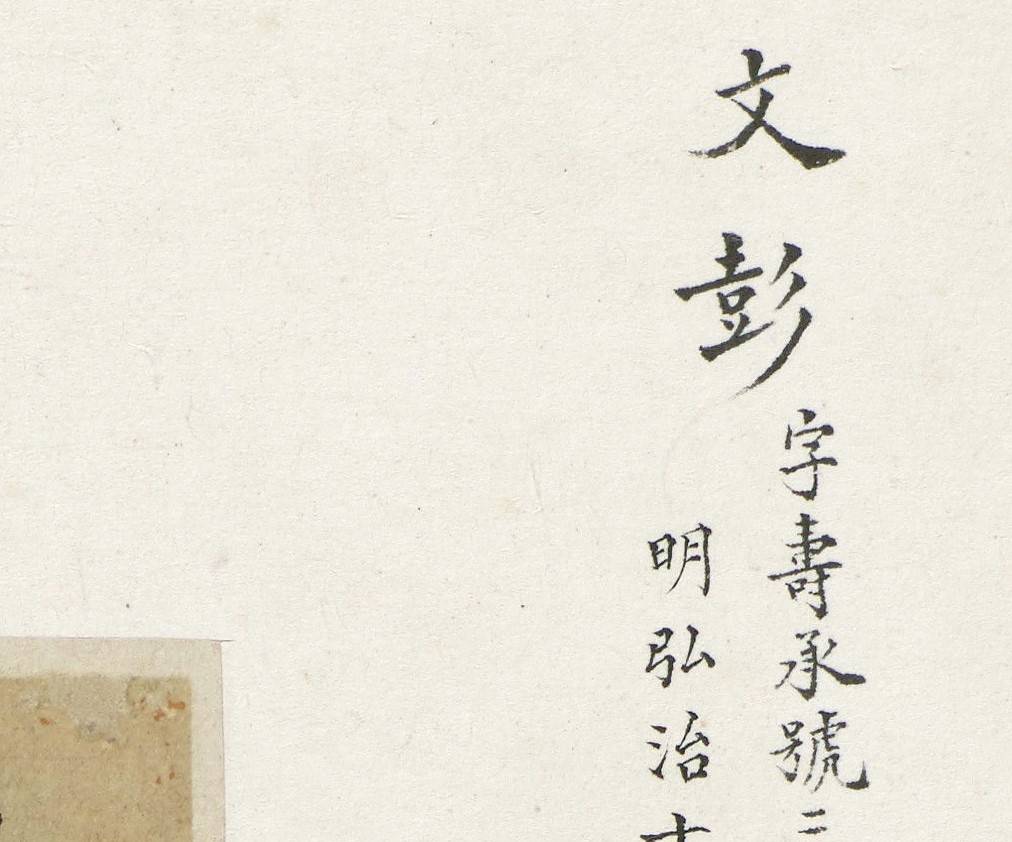 文彭
字壽承號三
明弘治十